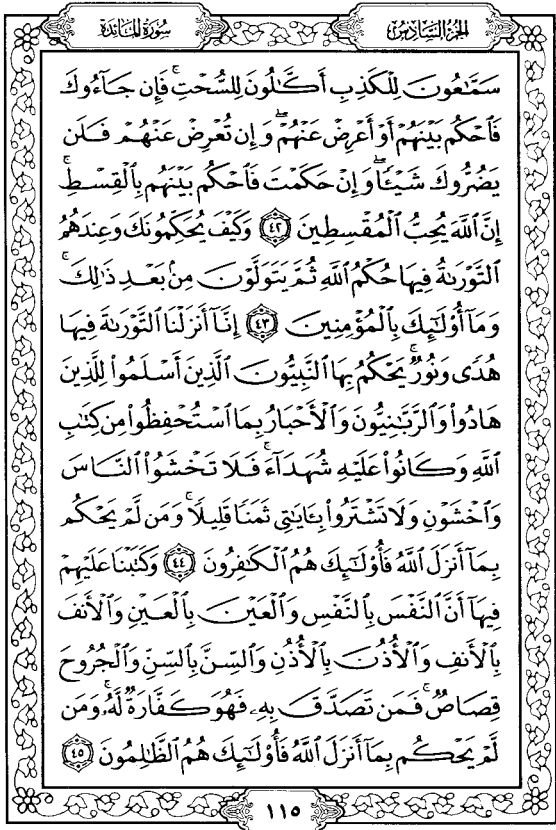 الجزء السادس
سورة المائدة
سَمَّـٰعُونَ لِلْكَذِبِ أَكَّـٰلُونَ لِلسُّحْتِ ۚ فَإِن جَآءُوكَ
فَٱحْكُم بَيْنَهُمْ أَوْ أَعْرِضْ عَنْهُمْ ۖ وَإِن تُعْرِضْ عَنْهُمْ فَلَن
يَضُرُّوكَ شَيْـًٔا ۖ وَإِنْ حَكَمْتَ فَٱحْكُم بَيْنَهُم بِٱلْقِسْطِ ۚ
إِنَّ ٱللَّهَ يُحِبُّ ٱلْمُقْسِطِينَ ٤٢ وَكَيْفَ يُحَكِّمُونَكَ وَعِندَهُمُ
ٱلتَّوْرَىٰةُ فِيهَا حُكْمُ ٱللَّهِ ثُمَّ يَتَوَلَّوْنَ مِنۢ بَعْدِ ذَٰلِكَ ۚ
وَمَآ أُو۟لَـٰٓئِكَ بِٱلْمُؤْمِنِينَ ٤٣ إِنَّآ أَنزَلْنَا ٱلتَّوْرَىٰةَ فِيهَا
هُدًى وَنُورٌ ۚ يَحْكُمُ بِهَا ٱلنَّبِيُّونَ ٱلَّذِينَ أَسْلَمُوا۟ لِلَّذِينَ
هَادُوا۟ وَٱلرَّبَّـٰنِيُّونَ وَٱلْأَحْبَارُ بِمَا ٱسْتُحْفِظُوا۟ مِن كِتَـٰبِ
ٱللَّهِ وَكَانُوا۟ عَلَيْهِ شُهَدَآءَ ۚ فَلَا تَخْشَوُا۟ ٱلنَّاسَ
وَٱخْشَوْنِ وَلَا تَشْتَرُوا۟ بِـَٔايَـٰتِى ثَمَنًا قَلِيلًا ۚ وَمَن لَّمْ يَحْكُم
بِمَآ أَنزَلَ ٱللَّهُ فَأُو۟لَـٰٓئِكَ هُمُ ٱلْكَـٰفِرُونَ ٤٤ وَكَتَبْنَا عَلَيْهِمْ
فِيهَآ أَنَّ ٱلنَّفْسَ بِٱلنَّفْسِ وَٱلْعَيْنَ بِٱلْعَيْنِ وَٱلْأَنفَ
بِٱلْأَنفِ وَٱلْأُذُنَ بِٱلْأُذُنِ وَٱلسِّنَّ بِٱلسِّنِّ وَٱلْجُرُوحَ
قِصَاصٌ ۚ فَمَن تَصَدَّقَ بِهِۦ فَهُوَ كَفَّارَةٌ لَّهُۥ ۚ وَمَن
لَّمْ يَحْكُم بِمَآ أَنزَلَ ٱللَّهُ فَأُو۟لَـٰٓئِكَ هُمُ ٱلظَّـٰلِمُونَ ٤٥
١١٥